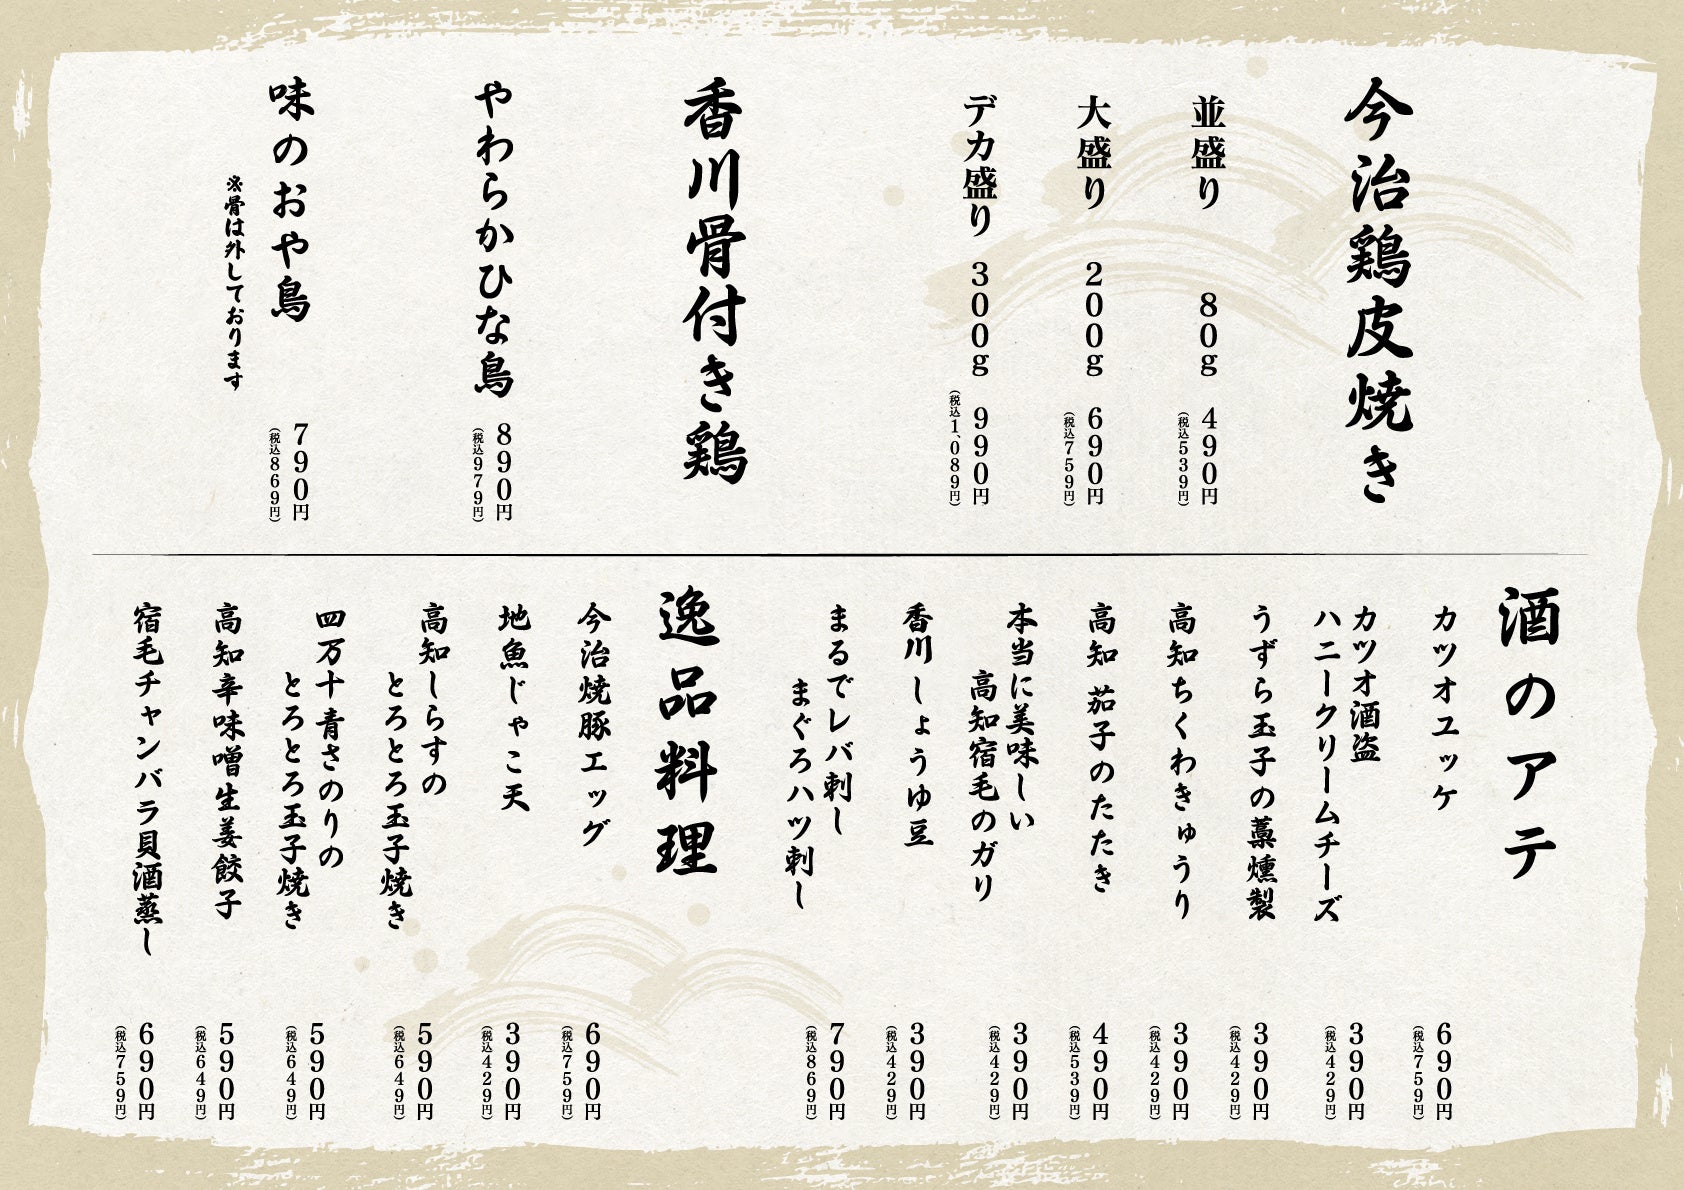 今治鶏皮焼き
並盛り 80g 490円
(税込539円)
大盛り 200g 690円
(税込759円)
デカ盛り 300g 990円
(税込1,089円)
香川骨付き鶏
やわらかひな鳥 890円
(税込979円)
味のおや鳥 790円
(税込869円)
※骨は外しております
酒のアテ
カツオユッケ 690円
(税込759円)
カツオ酒盗
ハニークリームチーズ 390円
(税込429円)
うずら玉子の藁燻製 390円
(税込429円)
高知ちくわきゅうり 390円
(税込429円)
高知 茄子のたたき 490円
(税込539円)
本当に美味しい
高知宿毛のガリ 390円
(税込429円)
香川 しょうゆ豆 390円
(税込429円)
まるでレバ刺し
まぐろハツ刺し 790円
(税込869円)
逸品料理
今治焼豚エッグ 690円
(税込759円)
地魚じゃこ天 390円
(税込429円)
高知しらすの
とろとろ玉子焼き 590円
(税込649円)
四万十青さのりの
とろとろ玉子焼き 590円
(税込649円)
高知辛味噌生姜餃子 590円
(税込649円)
宿毛チャンバラ貝酒蒸し 690円
(税込759円)